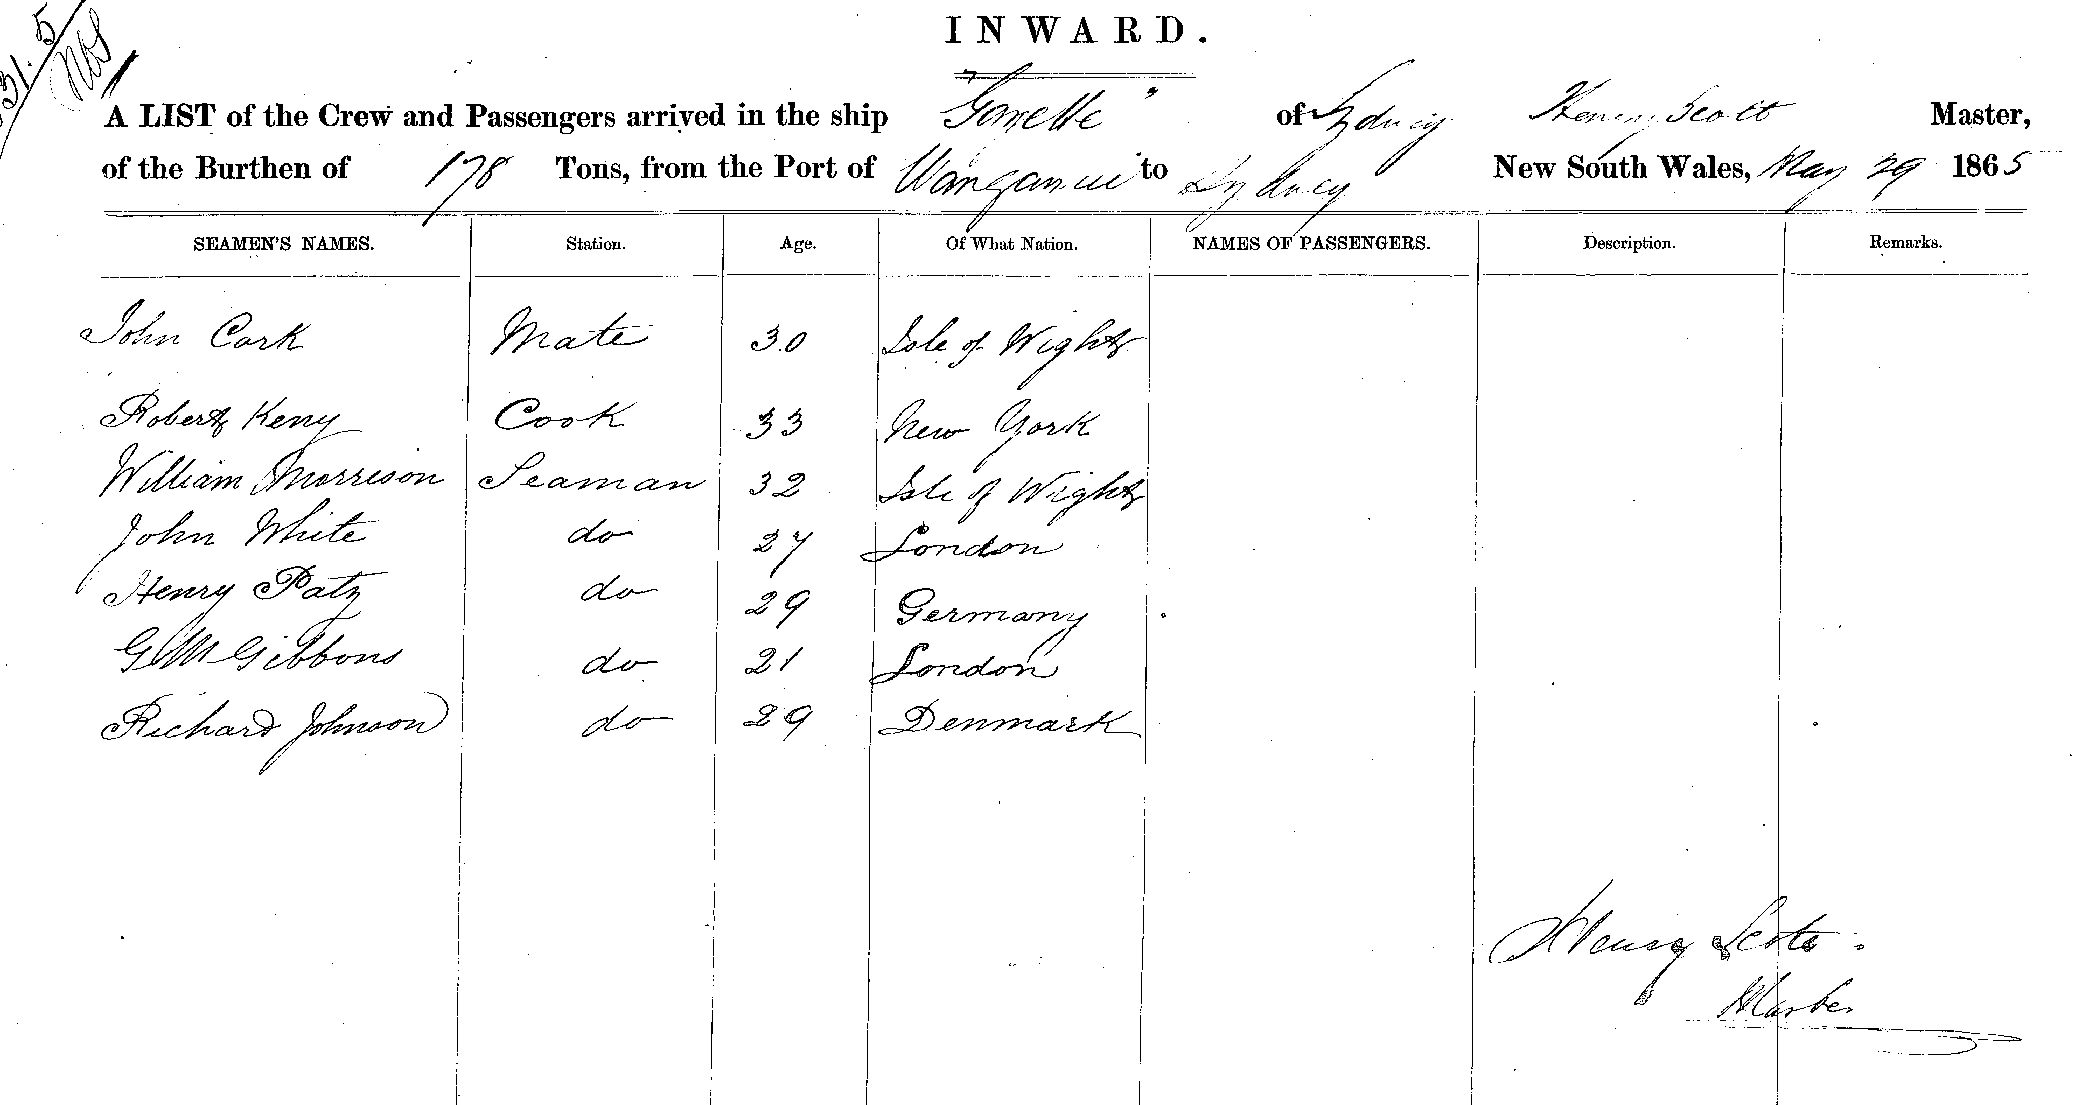 31.5
INWARD.
A LIST of the Crew and Passengers arrived in the ship "Gazelle" of Sydney Henry Scott Master,
of the Burthen of 178 Tons, from the Port of Wanganui to Sydney New South Wales, May 29 1865
SEAMEN'S NAMES. Station. Age. Of What Nation. NAMES OF PASSENGERS. Description. Remarks.
John Cork Mate 30 Isle of Wight
Robert Keny Cook 33 New York
William Morrison Seaman 32 Isle of Wight
John White do 27 London
Henry Patz do 29 Germany
G M Gibbons do 21 London
Richard Johnson do 29 Denmark
Henry Scott
Master